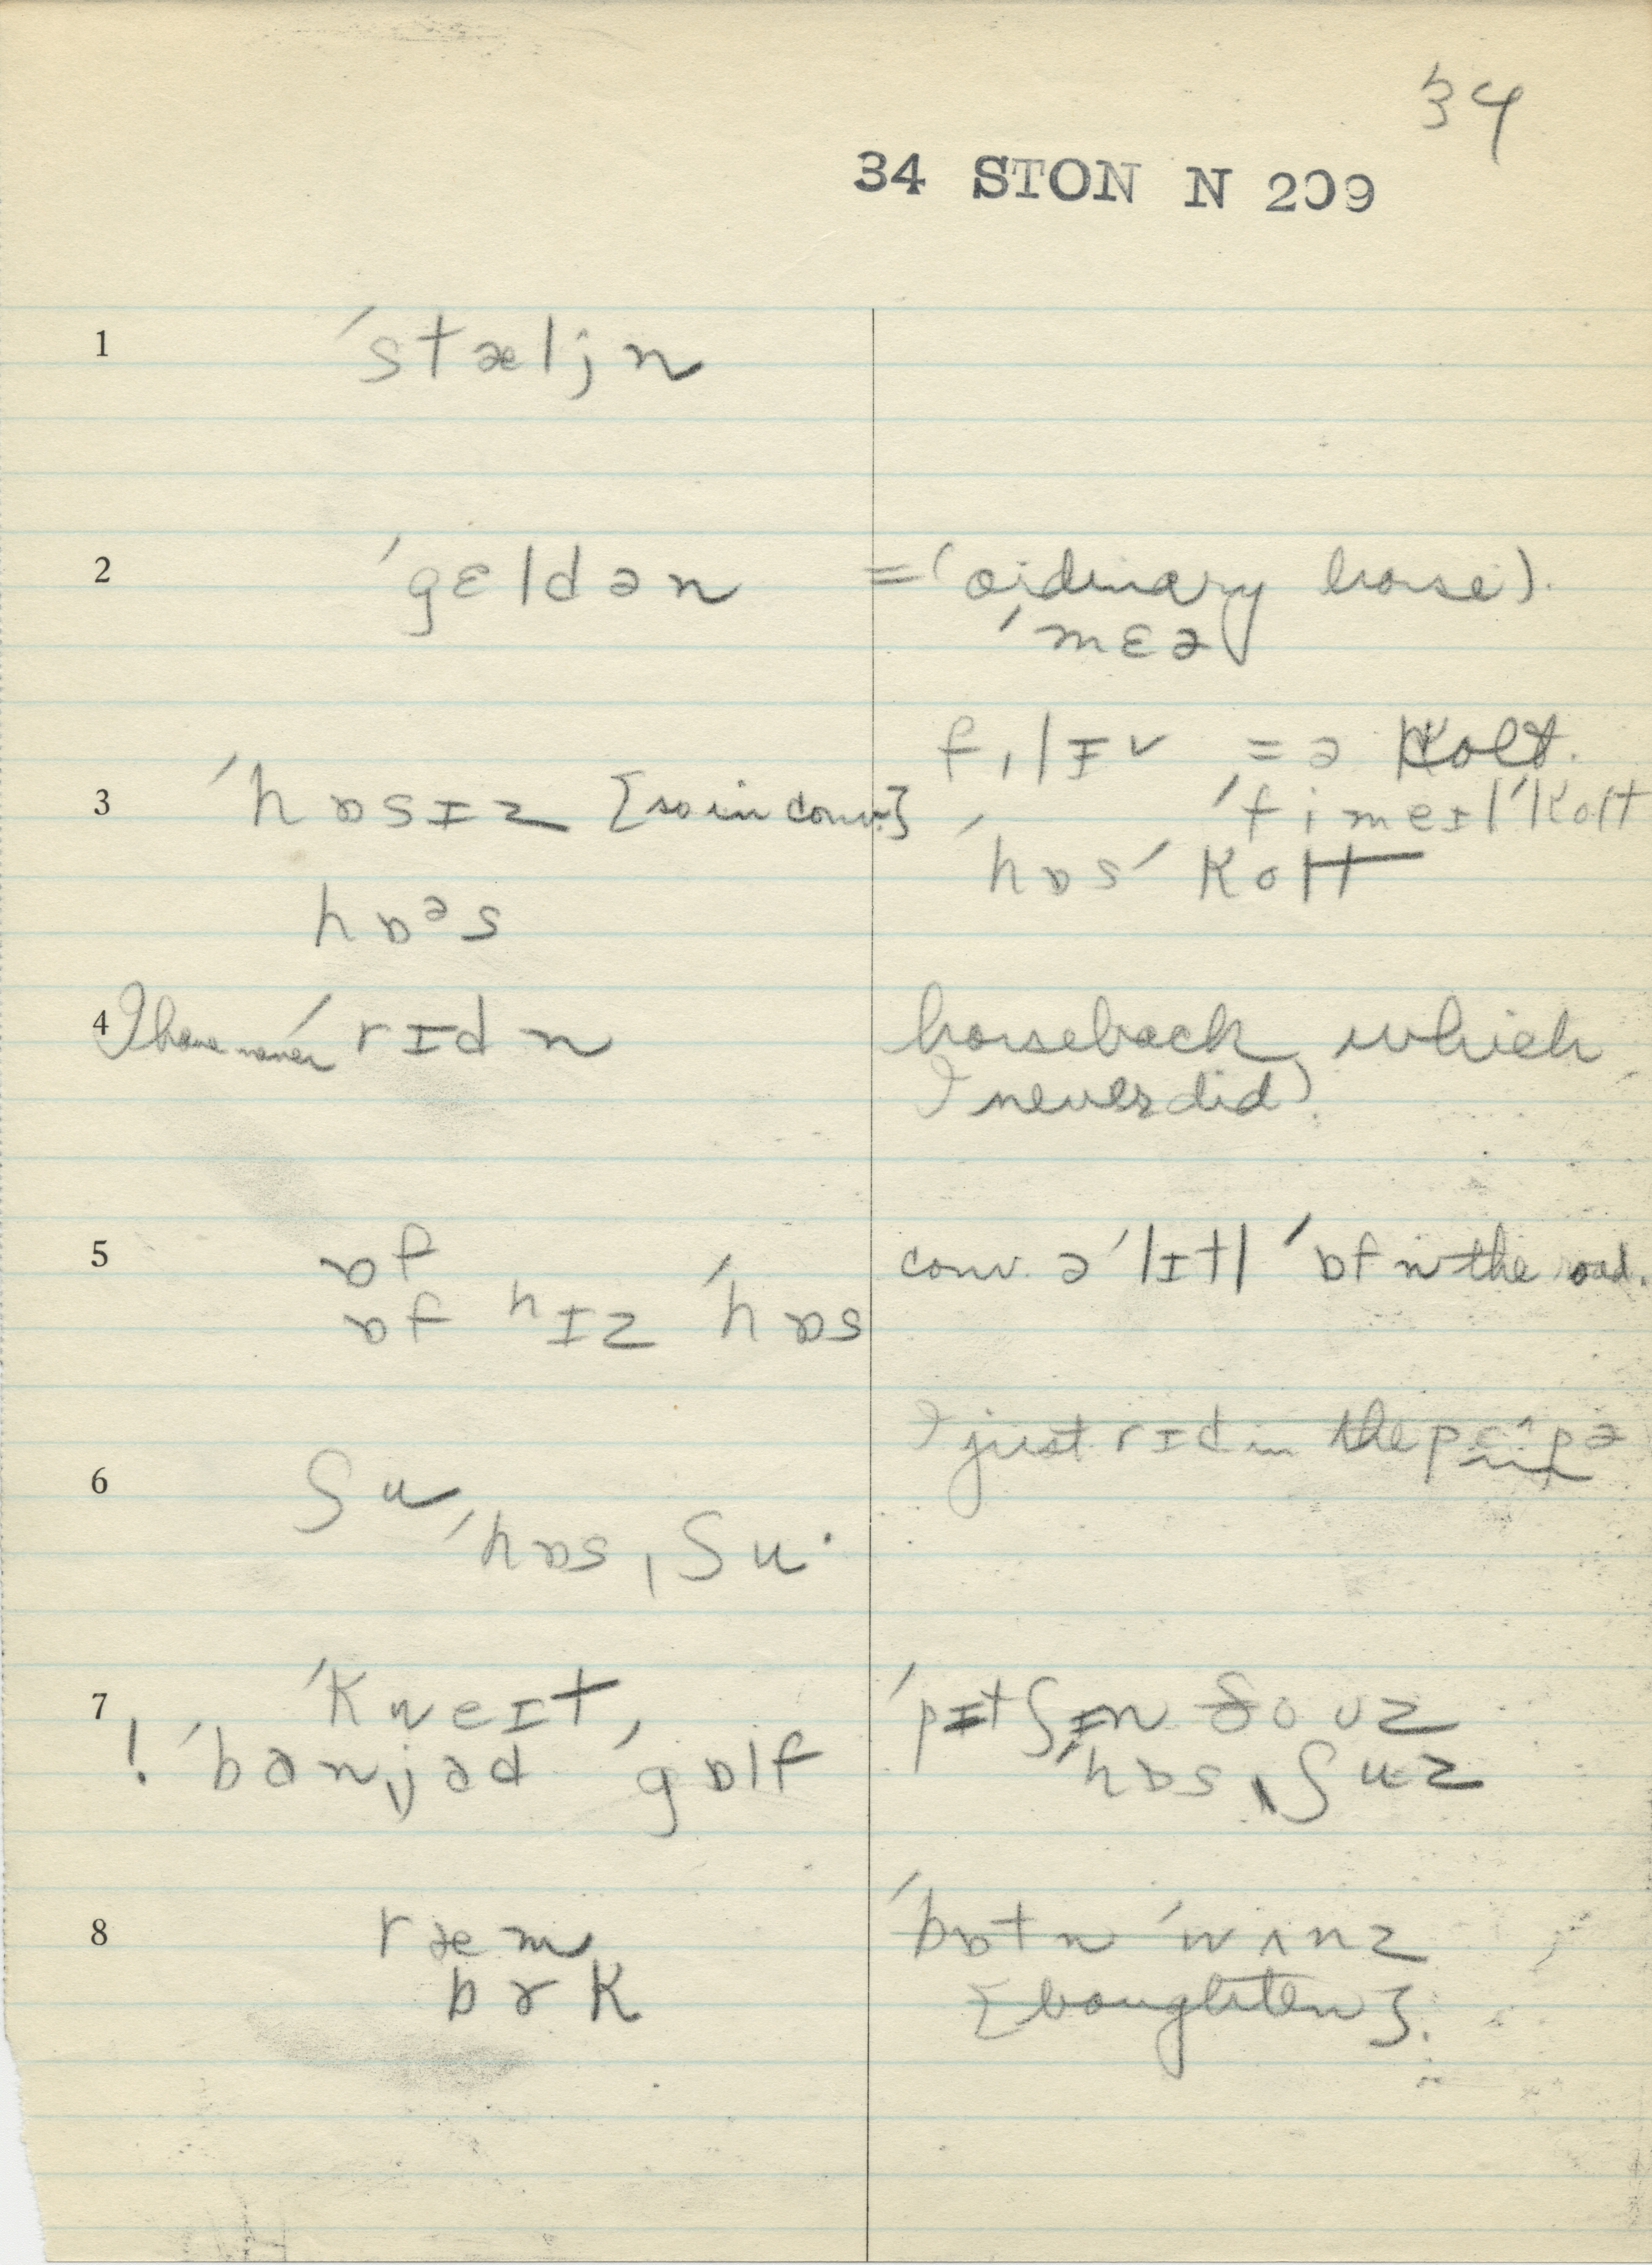 34
34 STON N 209
1 ˈstæljn
2 ˈgɛldən = (ordinary horse).
ˈmɛə
fˌlɪv = ə Kolt.
3 ˈhɒsɪz [so in conv.] ˈfimeɪlˈKolt
ˈhɒsˈKolt
hɒᵊs
4 I have never ˈrɪdn horseback, which
I never did).
5 ɒf conv. əˈlɪtl ˈɒf n the road.
ɒf hɪz ˈhɒs
I just rɪd in the
6 ʃu
ˈhɒsˌʃu·
7 ˈKweɪt, ˈpɪtʃɪn ðoʊz
! ˈbanˌjəd ˈgɒlf ˈhɒsˌʃuz
8 ræm ˈbɒtn ˈwʌnz
bɤK [boughten].